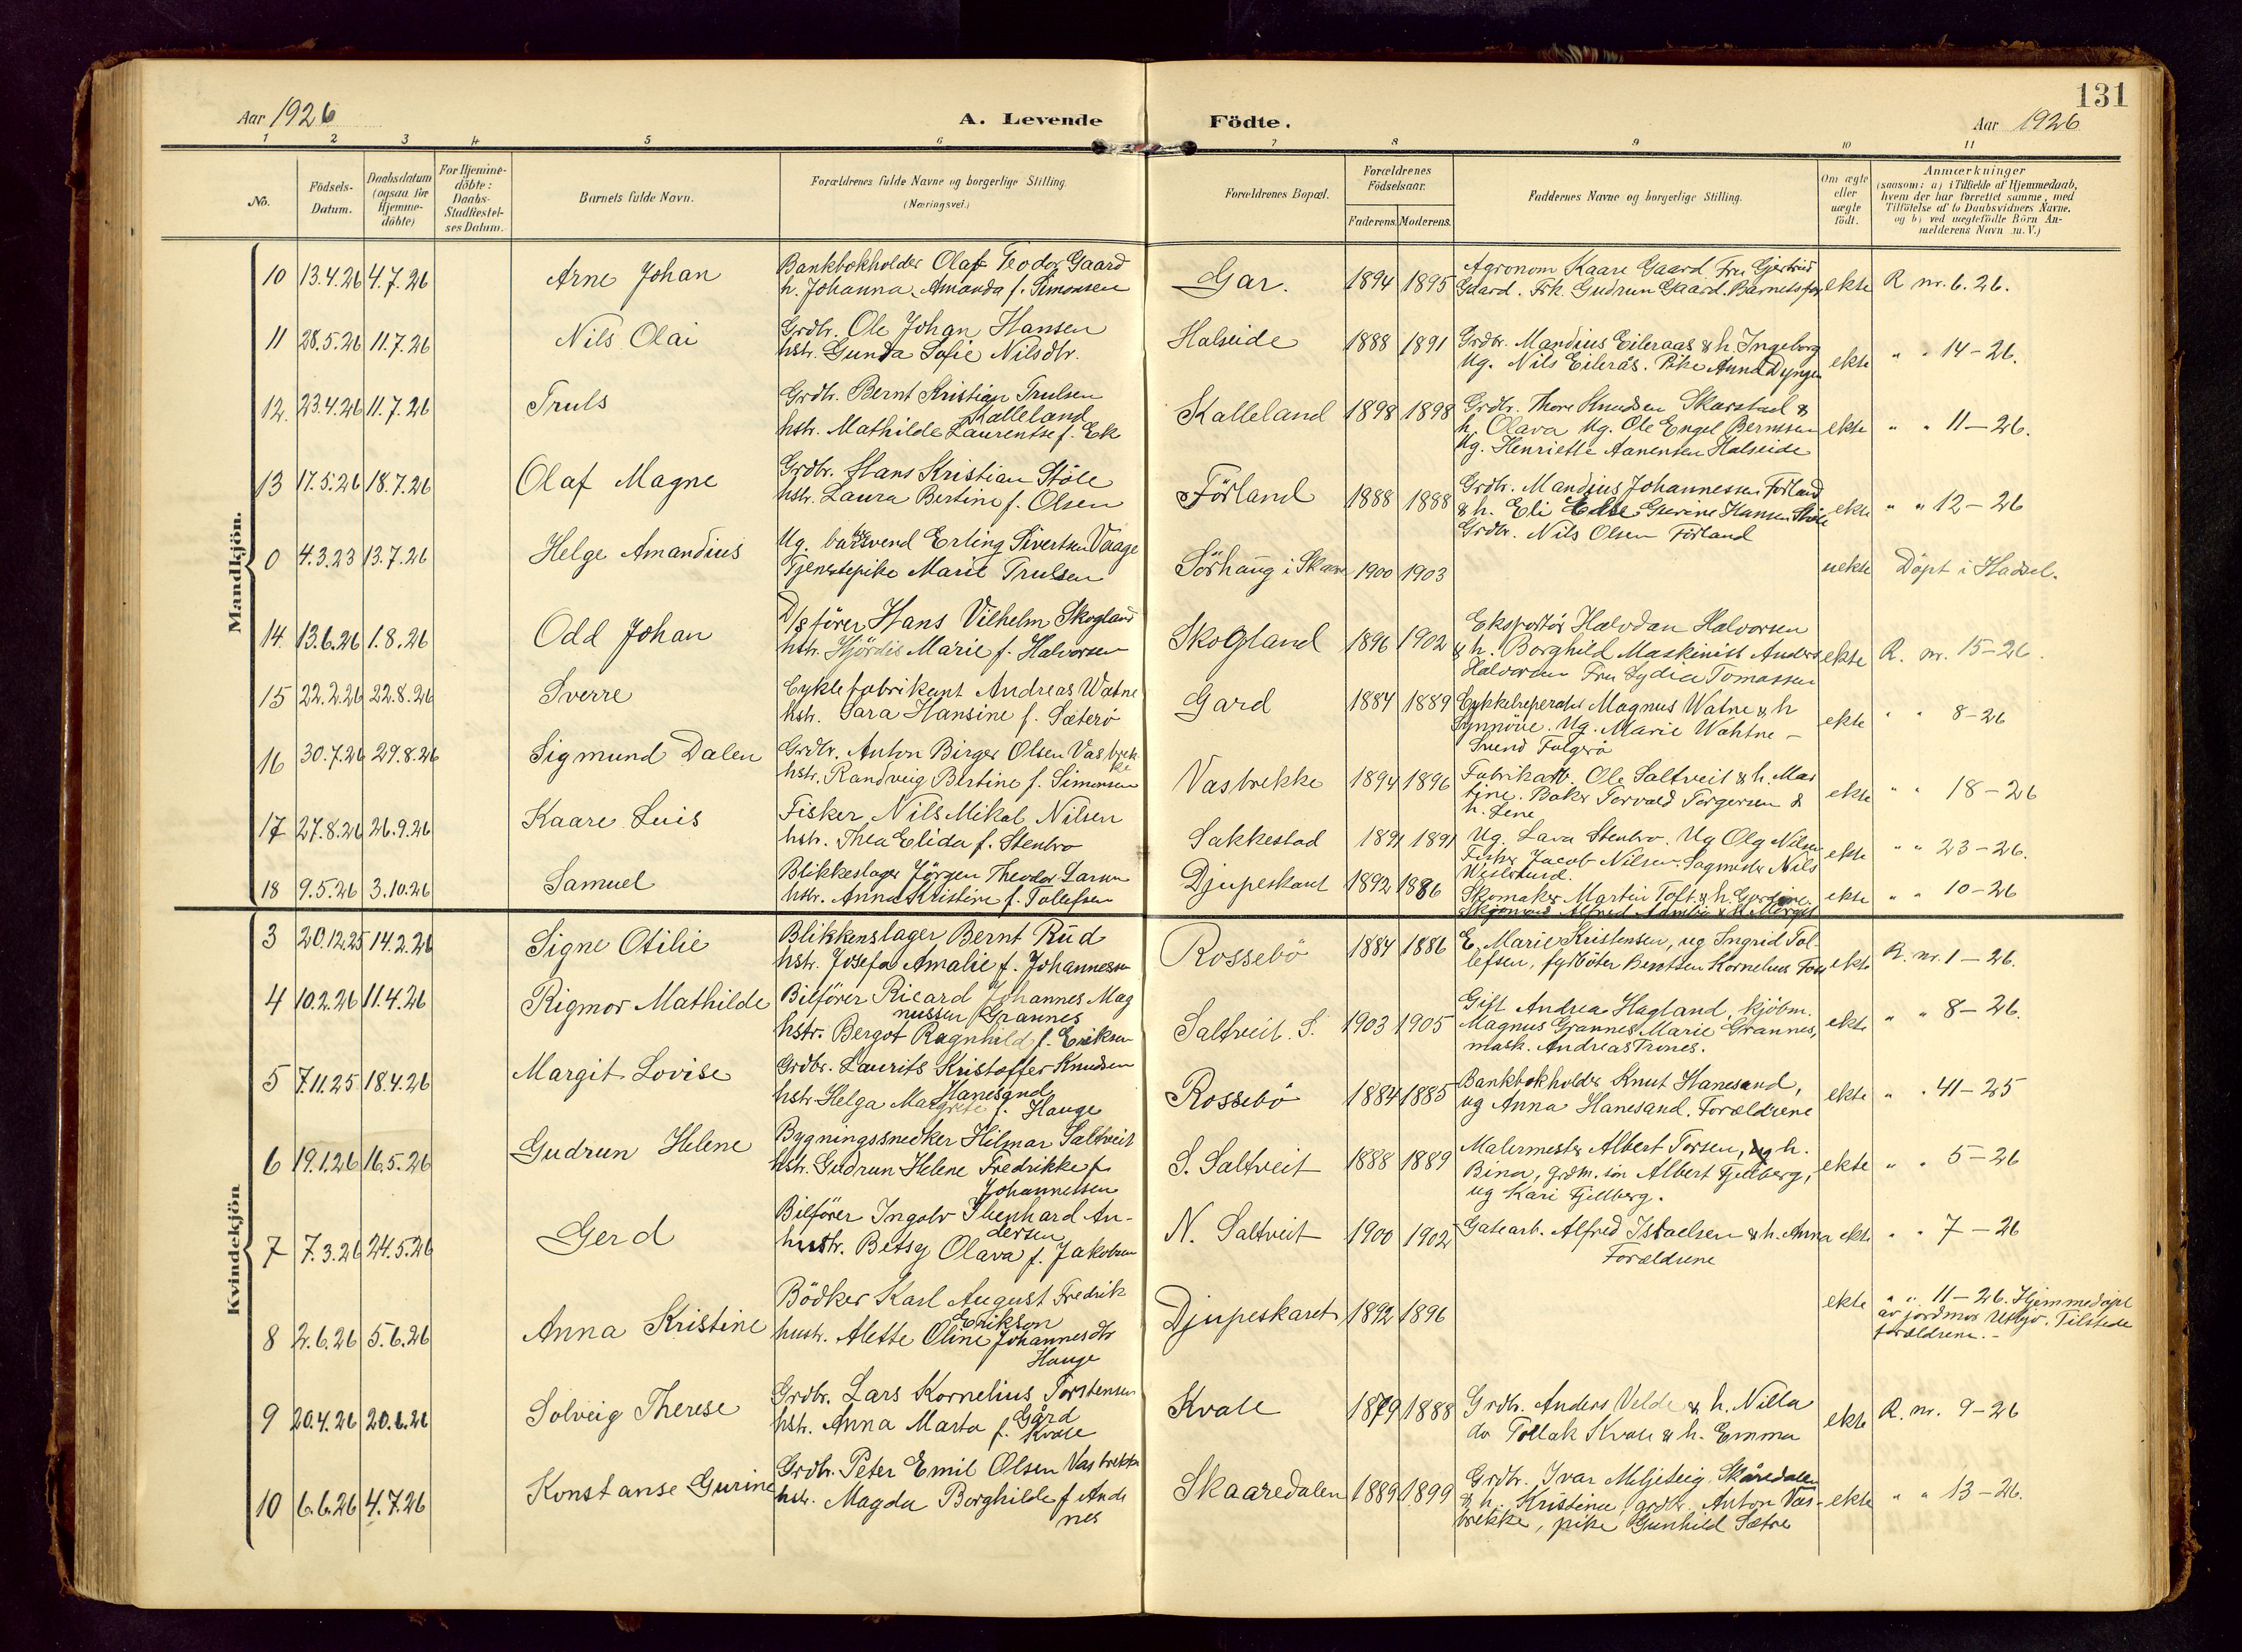 131
Aar 1926
A. Levende Födte.
Aar 1926
1 2 3 4 5 6 7 8 9 10 11
No.
Födsels-Datum.
Daabsdatum (ogsaa for Hjemme-döbte)
For Hjemme-döbte: Daabs-Stadfæstel-ses Datum.
Barnets fulde Navn.
Forældrenes fulde Navne og borgerlige Stilling. (Næringsvei.)
Forældrenes Bopæl.
Forældrenes Födselsaar.
Faderens. Moderens.
Faddernes Navne og borgerlige Stilling.
Om ægte eller uægte födt.
Anmærkninger
(saasom: a) i Tilfælde af Hjemmedaab,
hvem der har forrettet samme, med
Tilföielse af to Daabsvidners Navne,
og b) ved uægtefödte Börn An-
melderens Navn m. V.)
Mandkjön.
10 13.4.26 4.7.26 Arne Johan
Bankbokholder Olaf Teodor Gaard
h. Johanna Amanda f. Simonsen
Gar. 1894 1895
Agronom Kaare Gaard. Fru Gjertrud
Gaard. Frk. Gudrun Gaard. Barnets far
ekte R nr. 6. 26.
11 28.5.26 11.7.26 Nils Olai
Grdbr. Ole Johan Hansen
hstr. Gunda Sofie Nilsdtr.
Halseide 1888 1891
Grdbr. Mandius Eileraas & h. Ingeborg
Ug. Nils Eilerås. Pike Anna Dyngen
ekte " " 14-26.
12. 23.4.26 11.7.26 Truls
Grdbr. Bernt Kristian Trulsen
Kalleland
hstr. Mathilde Laurentse f. Ek
Kalleland 1898 1898
Grdbr. Thore Knudsen Skarstad &
h. Olava Ug. Ole Engel Berntsen
Ug. Henriette Aanensen Halseide
ekte " " 11-26.
13 17.5.26 18.7.26 Olaf Magne
Grdbr. Hans Kristian Stöle
hstr. Laura Bertine f. Olsen
Förland 1888 1888
Grdbr. Mandius Johannessen Forland
& h. Eli Gurine Hansen Stöle
Grdbr. Nils Olsen Forland
ekte " " 12-26
0 4.3.23 13.7.26 Helge Amandius
Ug. Erling Sivertsen Vaage
Tjenestepike Marie Trulsen
Sörhaug i Skaare 1900 1903
uekte Döpt i Hadsel.
14. 13.6.26 1.8.26 Odd Johan
D/s förer Hans Vilhelm Skogland
hstr. Hjördis Marie f. Halvorsen
Skogland 1896 1902
Eksportör Halvdan Halvorsen
& h. Borghild Maskinist Anders
Halvorsen Fru Lydia Tomassen
ekte R. nr. 15-26.
15 22.2.26 22.8.26 Sverre
Cyklefabrikant Andreas Watne
hstr. Sara Hansine f. Sæterö
Gard 1884 1889
Magnus Watne & h
Synnöve. Ug. Marie Wahtne -
Svend Folgerö
ekte " " 8-26
16 30.7.26 29.8.26 Sigmund Dalen
Grdbr. Anton Birger Olsen Vasbrek
ke
hstr. Randveig Bertine f. Simonsen
Vasbrekke 1894 1896
Fabrikarb. Ole Saltveit & h. Mar
tine. Baker Torvald Torgersen &
h. Lene
ekte " " 18-26
17 27.8.26 26.9.26 Kaare Luis
Fisker Nils Mikal Nilsen
hstr. Thea Elida f. Stenbro
Sakkestad 1891 1891
Ug. Lava Stenbro. Ug Olg Nilsen
Fisker Jacob Nilsen. Sagmester Nils
ekte " " 23-26.
18 9.5.26 3.10.26 Samuel
Blikkeslager Jörgen Theodor Larsen
hstr. Anna Kristine f. Tollefsen
Djupeskart 1892 1886
Skomaker Martin Toft & h. Gurdine.
ekte " " 10-26
Kvindekjön
3 20.12.25 14.2.26 Signe Otilie
Blikkenslager Bernt Rud
hstr. Josefa Amalie f. Johannessen
Rossebö 1884 1886
E. Marie Kristensen, ug Ingrid Tol-
lefsen, fyrböter Berntsen Kornelius
ekte R. nr. 1-26.
4 10.2.26 11.4.26 Rigmor Mathilde
Bilförer Ricard Johannes Mag
nussen Grannes
hstr. Bergot Ragnhild f. Eriksen
Saltveit. S. 1903 1905
Gift Andrea Hagland, kjöbm.
Magnus Grannes, Marie Grannes,
mask. Andreas Trones.
ekte " " 8-26.
5 7.11.25 18.4.26 Margit Lovise
Grdbr. Laurits Kristoffer Knudsen
Hanesand
hstr Helga Margrete f. Hauge
Rossebö 1884 1885
Bankbokholder Knut Hanesand,
ug Anna Hanesand. Forældrene
ekte " " 41-25
6 19.1.26 16.5.26 Gudrun Helene
Bygningssnedker Hilmar Saltveit
hstr. Gudrun Helene Fredrikke f.
Johannessen
S. Saltveit 1888 1889
Malermester Albert Torsen, h.
Bina, grdm. sön Albert Fjelberg,
ug Kari Fjellberg.
ekte " " 5-26
7 7.3.26 24.5.26 Gerd
Bilförer Ingolv An-
dersen
hustr. Betsy Olava f. Jakobsen
N. Saltveit 1900 1902
Gatearb. Alfred Israelsen & h. Anna
Forældrene
ekte " " 7-26
8 2.6.26 5.6.26 Anna Kristine
Bödker Karl August Fredrik
Erikson
hustr. Alette Oline Johannesdtr
Hauge
Djupeskaret 1892 1896
ekte " " 11-26. Hjemmedöpt
av jordmor Utsljö. Tilstede
forældrene. -
9 20.4.26 20.6.26 Solveig Therese
Grdbr. Lars Kornelius Torstensen
Gård
hstr. Anna Marta f. Kvale
Kvale 1879 1888
Grdbr. Anders Velde & h. Nilla
do Tollak Kvale & h. Emma
ekte R. nr. 9-26
10 6.6.26 4.7.26 Konstanse Gurine
Grdbr. Peter Emil Olsen Vasbrekke
hstr. Magda Borghilde f Ande
nes
Skaaredalen 1889 1899
Grdbr. Ivar Miljeteig, Skåredalen
& h. Kristine, grdbr. Anton Vas-
brekke, pike Gunhild Sætre
ekte " " 13-26.